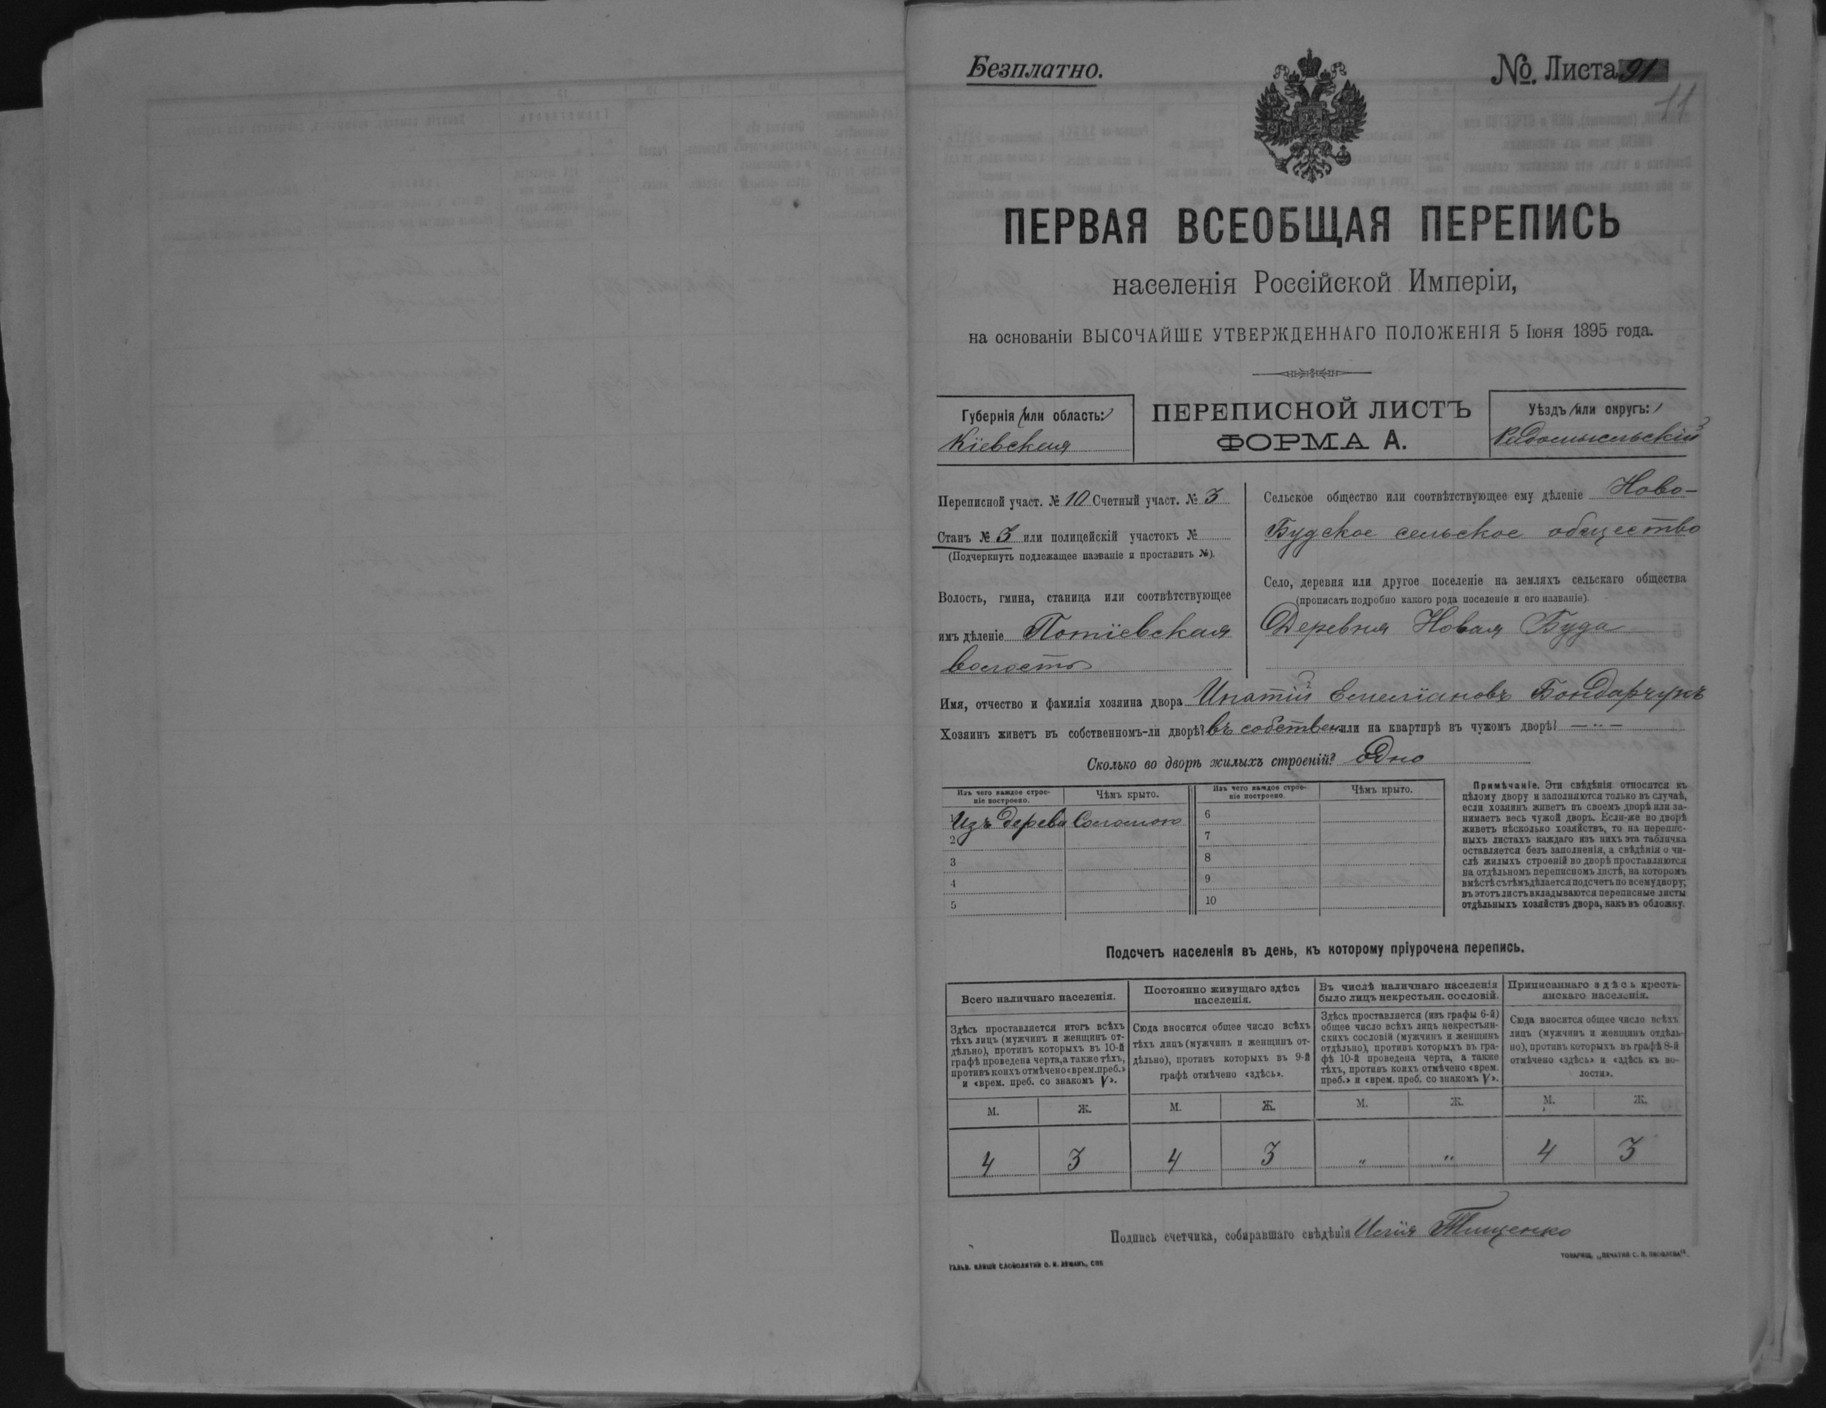 Безплатно.
№ Листа 91
11
ПЕРВАЯ ВСЕОБЩАЯ ПЕРЕПИСЬ
населенія Россійской Имперіи,
на основаніи ВЫСОЧАЙШЕ УТВЕРЖДЕННАГО ПОЛОЖЕНІЯ 5 Іюня 1895 года.
Губернія /или область:/
Кіевская
ПЕРЕПИСНОЙ ЛИСТЪ
ФОРМА А.
Уѣздъ /или округъ:/
Радомысльскій
Переписной участ. № 10 Счетный участ. № 3
Станъ № 3 или полицейскій участокъ №
(Подчеркнуть подлежащее названіе и проставить №).
Волость, гмина, станица или соотвѣтствующее
имъ дѣленіе Потіевская
волость
Сельское общество или соотвѣтствующее ему дѣленіе Ново-
Будское сельское общество
Село, деревня или другое поселеніе на земляхъ сельскаго общества
(прописать подробно какого рода поселеніе и его названіе).
Деревня Новая Буда
Имя, отчество и фамилія хозяина двора Ипатій Емеліановъ Бондарчукъ
Хозяинъ живетъ въ собственномъ-ли дворѣ? въ собствен. или на квартирѣ въ чужомъ дворѣ? — „ —
Сколько во дворѣ жилыхъ строеній? Одно
Изъ чего каждое строе-
ніе построено.
Чѣмъ крыто.
Изъ чего каждое строе-
ніе построено.
Чѣмъ крыто.
Изъ дерева Соломою
2
3
4
5
6
7
8
9
10
Примѣчаніе. Эти свѣдѣнія относятся къ
цѣлому двору и заполняются только въ случаѣ,
если хозяинъ живетъ въ своемъ дворѣ или за-
нимаетъ весь чужой дворъ. Если-же во дворѣ
живетъ нѣсколько хозяйствъ, то на перепис-
ныхъ листахъ каждаго изъ нихъ эта табличка
оставляется безъ заполненія, а свѣдѣнія о чи-
слѣ жилыхъ строеній во дворѣ проставляются
на отдѣльномъ переписномъ листѣ, на которомъ
вмѣстѣ съ тѣмъ дѣлается подсчетъ по всему двору;
въ этотъ листъ вкладываются переписные листы
отдѣльныхъ хозяйствъ двора, какъ въ обложку.
Подсчетъ населенія въ день, къ которому пріурочена перепись.
Всего наличнаго населенія.
Здѣсь проставляется итогъ всѣхъ
тѣхъ лицъ (мужчинъ и женщинъ от-
дѣльно), противъ которыхъ въ 10-й
графѣ проведена черта, а также тѣхъ,
противъ коихъ отмѣчено «врем. преб.»
и «врем. преб. со знакомъ V».
Постоянно живущаго здѣсь
населенія.
Сюда вносится общее число всѣхъ
тѣхъ лицъ (мужчинъ и женщинъ от-
дѣльно), противъ которыхъ въ 9-й
графѣ отмѣчено «здѣсь».
Въ числѣ наличнаго населенія
было лицъ некрестьян. сословій.
Здѣсь проставляется (изъ графы 6-й)
общее число всѣхъ лицъ некрестьян-
скихъ сословій (мужчинъ и женщинъ
отдѣльно), противъ которыхъ въ гра-
фѣ 10-й проведена черта, а также
тѣхъ, противъ коихъ отмѣчено «врем.
преб.» и «врем. преб. со знакомъ V».
Приписаннаго здѣсь кресть-
янскаго населенія.
Сюда вносится общее число всѣхъ
лицъ (мужчинъ и женщинъ отдѣль-
но), противъ которыхъ въ графѣ 8-й
отмѣчено «здѣсь» и «здѣсь въ во-
лости».
М. Ж. М. Ж. М. Ж. М. Ж.
4 3 4 3 „ „ 4 3
Подпись счетчика, собиравшаго свѣдѣнія Илія Тищенко